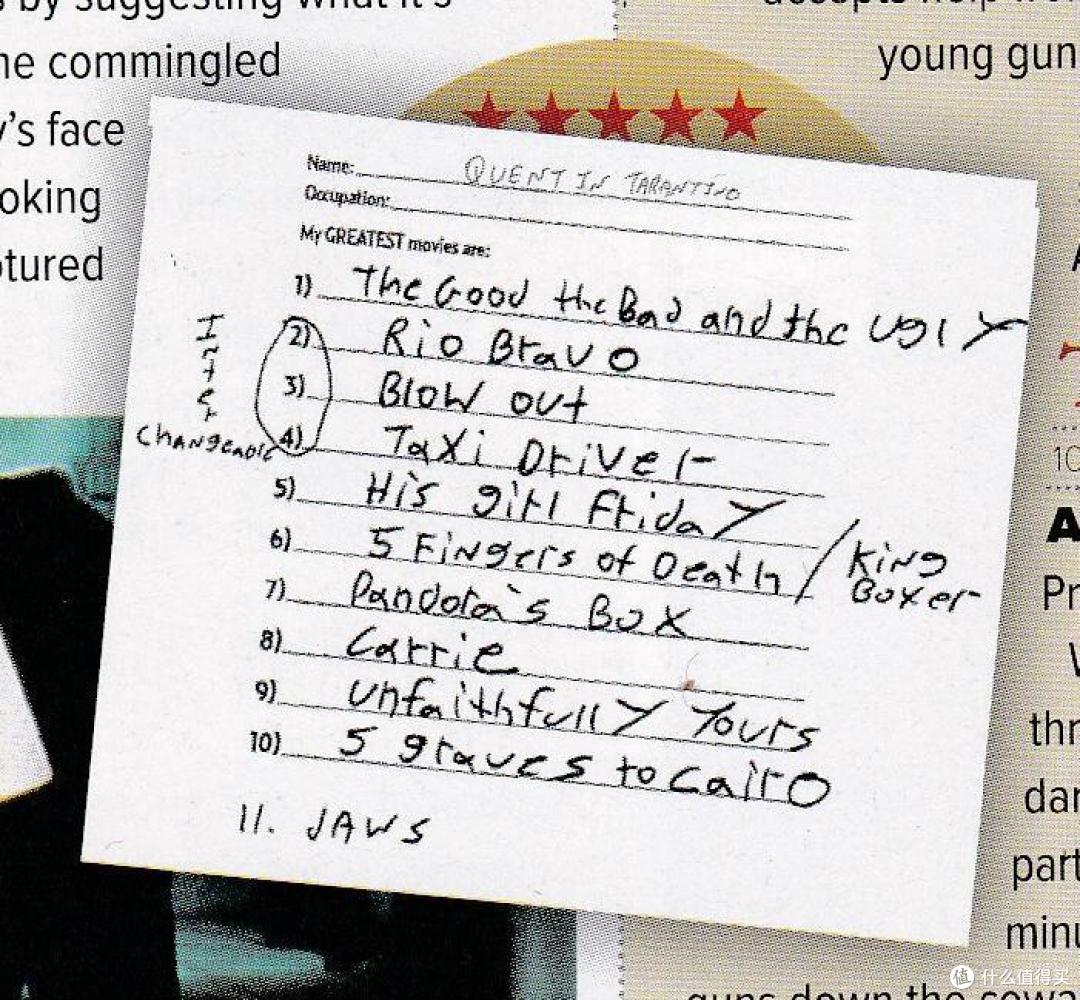 s by suggesting what it's
he commingled
y's face
oking
tured
young gun
Name: QUENTIN TARANTINO
Occupation:
My GREATEST movies are:
1) The Good the Bad and the Ugly
2) Rio Bravo
3) Blow out
4) Taxi Driver
Interchangeable
5) His girl Friday
6) 5 Fingers of Death / King Boxer
7) Pandora's Box
8) Carrie
9) unfaithfully Yours
10) 5 graves to Cairo
11. JAWS
10
A
Pr
thr
dar
part
minu
guns down the cowa
值 什么值得买